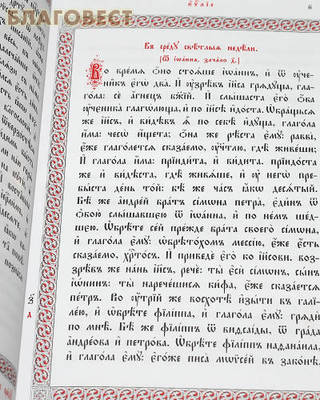 БЛАГОВЕСТ
Въ среду свѣтлыѧ недѣли.
[Ѿ іѡанна, зачало д҃.]
Во времѧ ѻно стоѧше іѡаннъ, и҆ ѿ оу҆че-
никъ є҆гѡ̀ два̀. И҆ оу҆зрѣ́въ і҆и҃са грѧдꙋща, гла-
гола: сѐ а҆́гнецъ бж҃ій. И҆ слышаста є҆го̀
ѻ҆́ба оу҆чєника̀ глаголюща, и҆ по і҆и҃сѣ и҆до́ста. Ѡ҆бра́щьсѧ
же і҆и҃съ и҆ ви́дѣвъ ѧ҆̀ по себѣ̀ и҆дꙋ̑ща, глаго́ла
и҆́ма: чесѡ̀ и҆́щета; ѻ҆́на же рѣ́ста є҆мꙋ̀: равві̀,
є҆́же глаго́летсѧ сказа́емо, оу҆чи́телю, гдѣ̀ живе́ши;
И҆ глаго́ла и҆́ма: прїиди́та, и҆ ви́дита. прїидо́ста
же и҆ ви́дѣста, гдѣ̀ живѧ́ше, и҆ оу҆ негѡ̀ пре-
бы́ста де́нь то́й: бѣ́ же ча́съ ꙗ҆́кѡ десѧ́тый.
Бѣ́ же а҆ндре́й бра́тъ сі́мѡна петра̀, є҆ди́нъ ѿ
ѻ҆бою̀ слы́шавшєю ѿ і҆ѡа́нна, и҆ по не́мъ ше́д-
шєю. Ѡ҆брѣ́те се́й пре́жде бра́та своего̀ сі́мѡна,
и҆ глаго́ла є҆мꙋ̀: ѡ҆брѣто́хомъ мессі́ю, є҆́же є҆́сть
сказа́емо, хрⷭ҇то́съ. И҆ приведѐ є҆го̀ ко і҆и҃сови. воз-
рѣ́въ же на́нь і҆и҃съ, речѐ: ты̀ є҆сѝ сі́мѡнъ, сы́нъ
і҆ѡ́нинъ: ты̀ нарече́шисѧ ки́фа, є҆́же сказа́етсѧ
пе́тръ. Во оу҆́трїй же восхотѣ̀ и҆зы́ти въ галі-
ле́ю, и҆ ѡ҆брѣ́те фїлі́ппа, и҆ глаго́ла є҆мꙋ̀: грѧдѝ
по мнѣ̀. Бѣ́ же фїлі́ппъ ѿ виѳсаі́ды, ѿ гра́да
а҆ндре́ова и҆ петро́ва. Ѡ҆брѣ́те фїлі́ппъ наѳана́ила,
и҆ глаго́ла є҆мꙋ̀: є҆го́же писа̀ мѡѷсе́й въ зако́нѣ